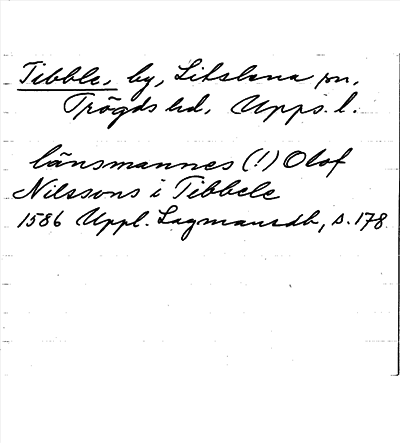 Tibble, by, Litslena sn,
Trögds hd, Upps. l.
länsmannes (!) Olof
Nilssons i Tibbele
1586 Uppl. Lagmansdb, s. 178